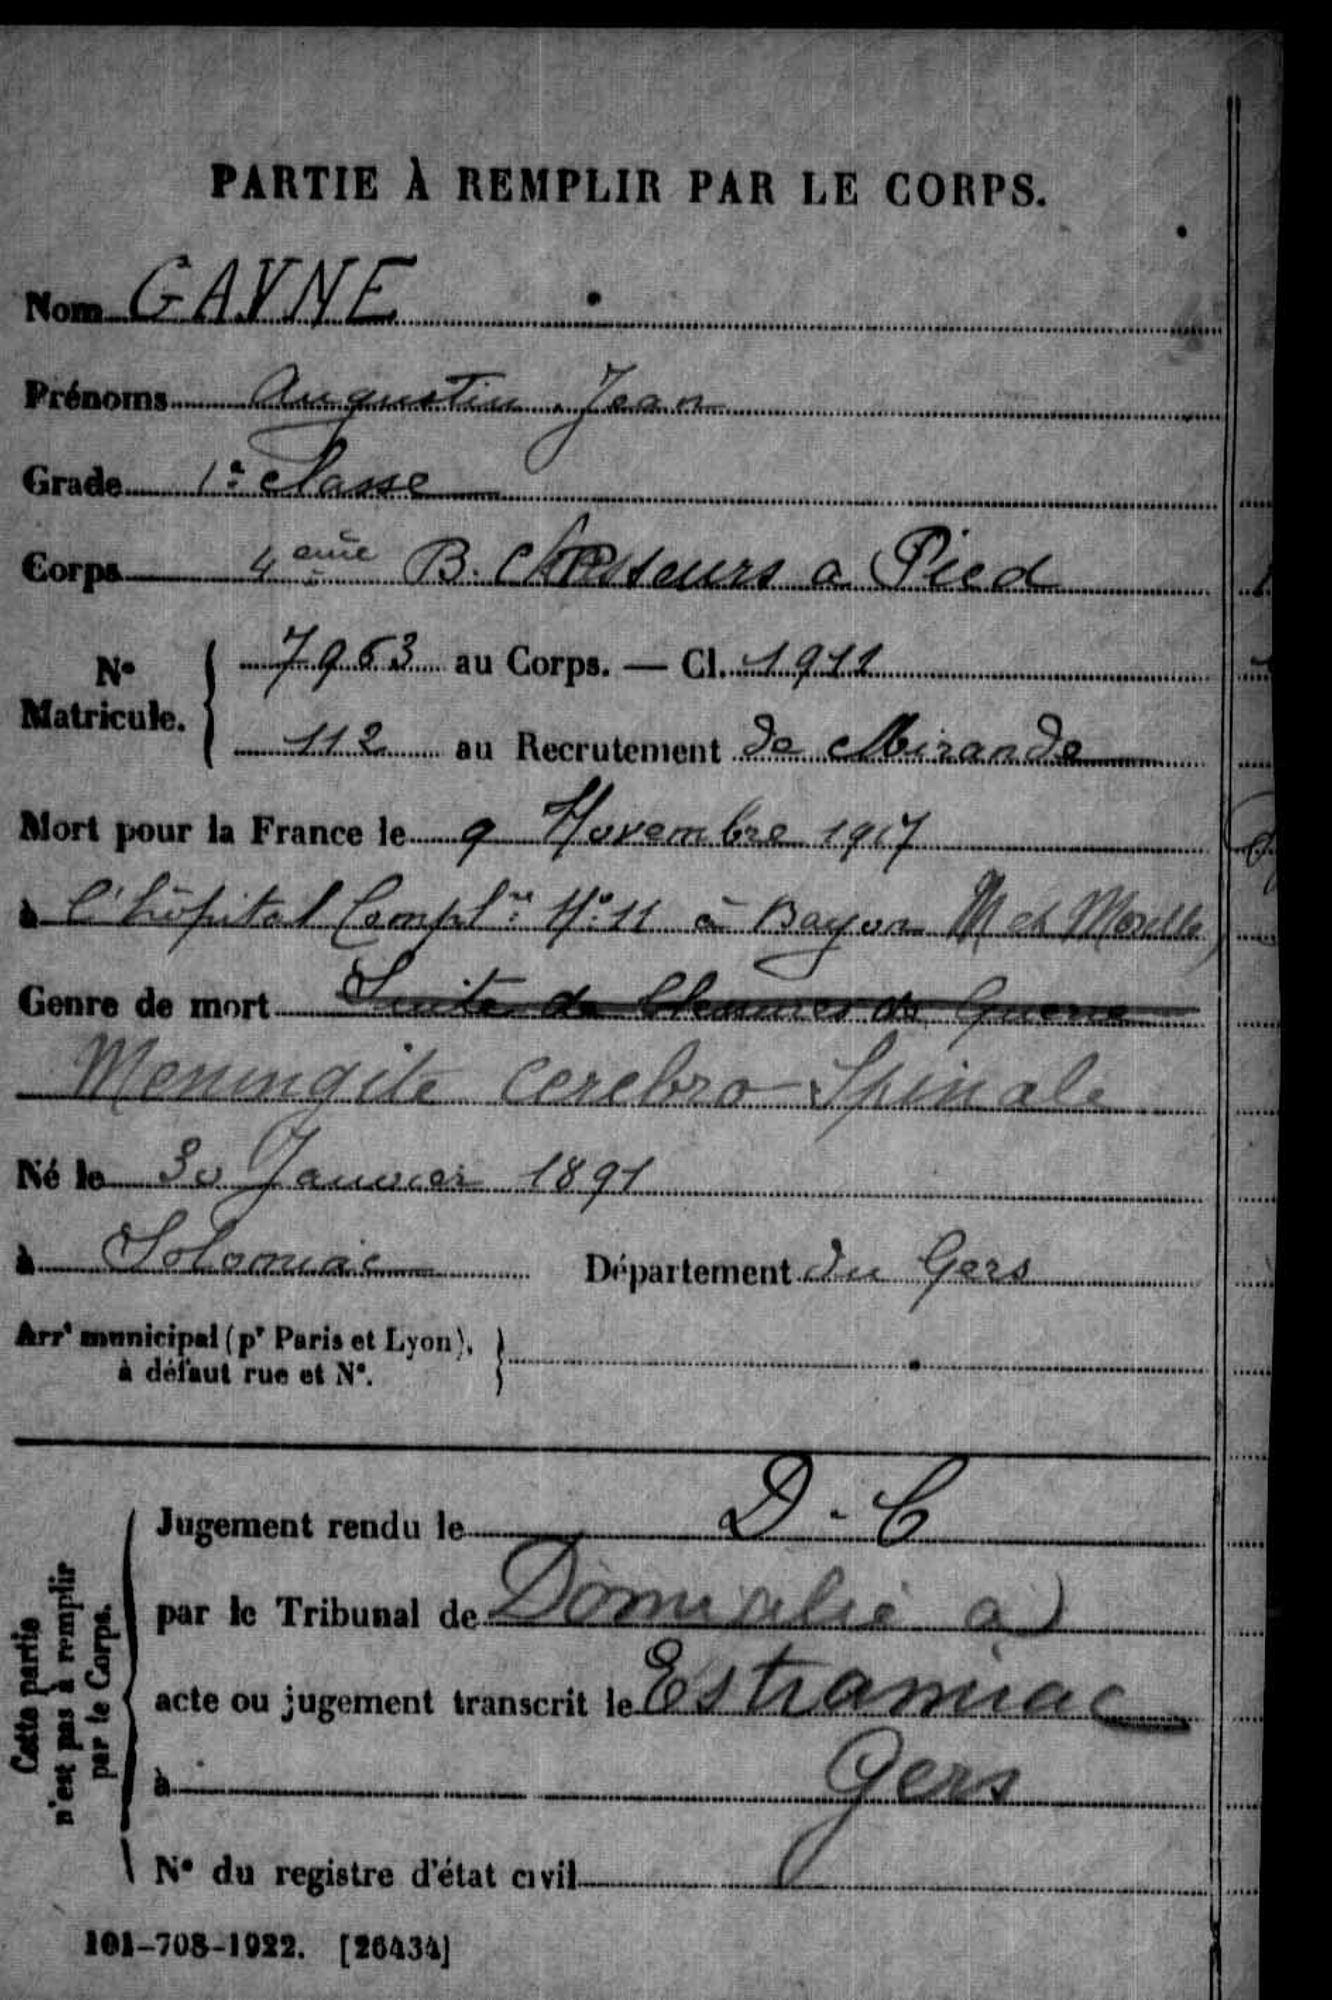 PARTIE À REMPLIR PAR LE CORPS.
Nom GAYNE
Prénoms Augustin Jean
Grade 1e classe
Corps 4eme B. Chasseurs a Pied
N° Matricule. 7963 au Corps. — Cl. 1911
112 au Recrutement de Mirande
Mort pour la France le 9 Novembre 1917
à l'hôpital Complre N° 11 à Bayon M et Moselle
Genre de mort Suite de blessures de Guerre
Meningite cerebro Spinale
Né le 30 Janvier 1891
à Solomiac Département du Gers
Arrt municipal (pr Paris et Lyon),
à défaut rue et N°.
Cette partie
n'est pas à remplir
par le Corps.
Jugement rendu le D.C
par le Tribunal de Domicilié à
acte ou jugement transcrit le Estramiac
à Gers
N° du registre d'état civil
101-708-1922. [26434]